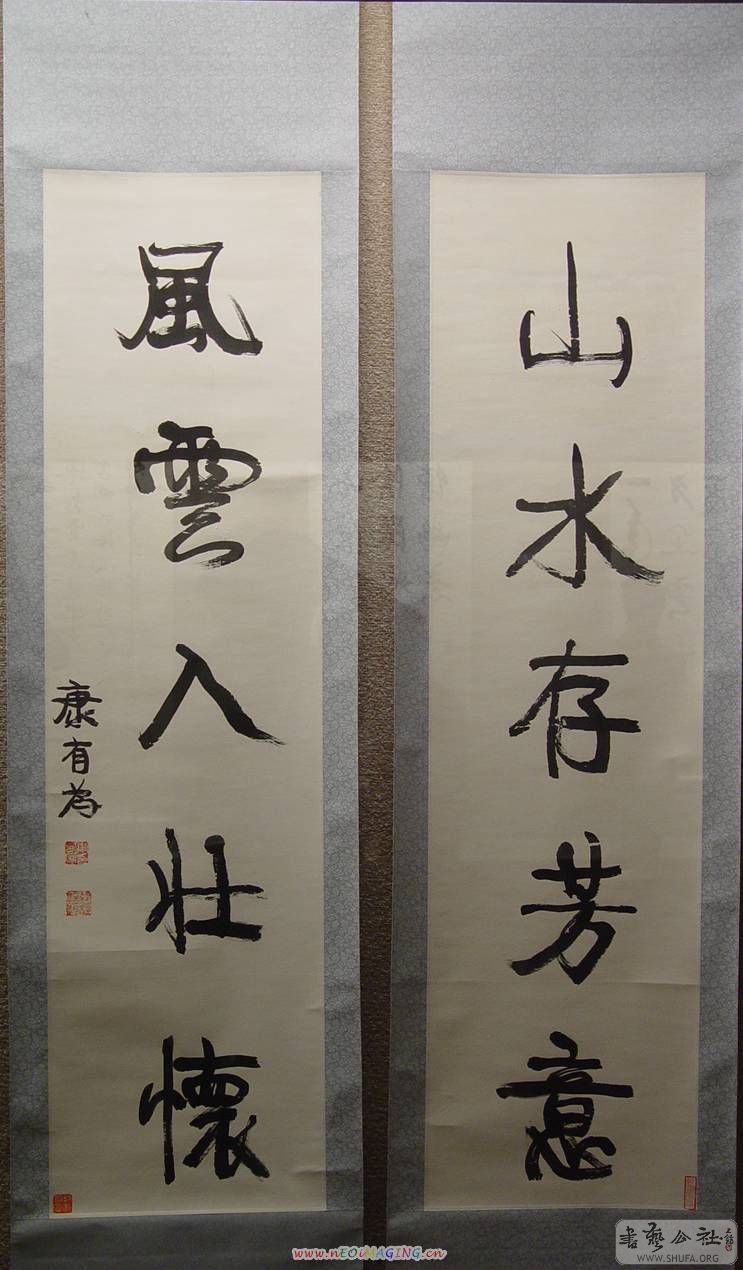 山水存芳意
風雲入壯懷
康有為
www.nEOiMAGiNG.cn
書藝公社
WWW.SHUFA.ORG